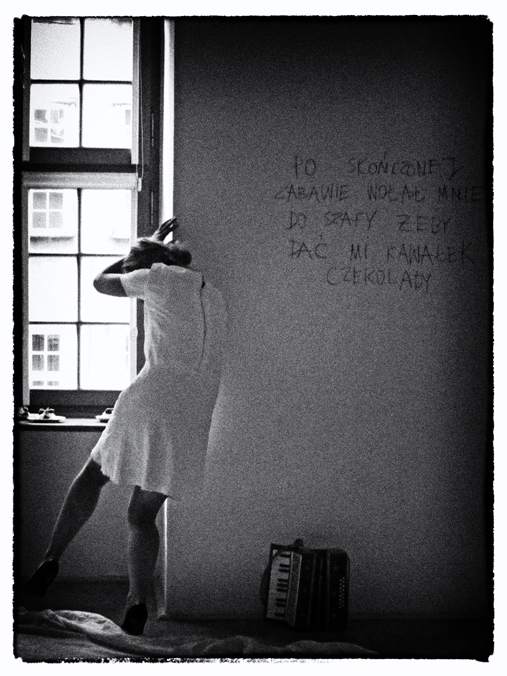 PO SKOŃCZONEJ
ZABAWIE WOŁAŁ MNIE
DO SZAFY ŻEBY
DAĆ MI KAWAŁEK
CZEKOLADY